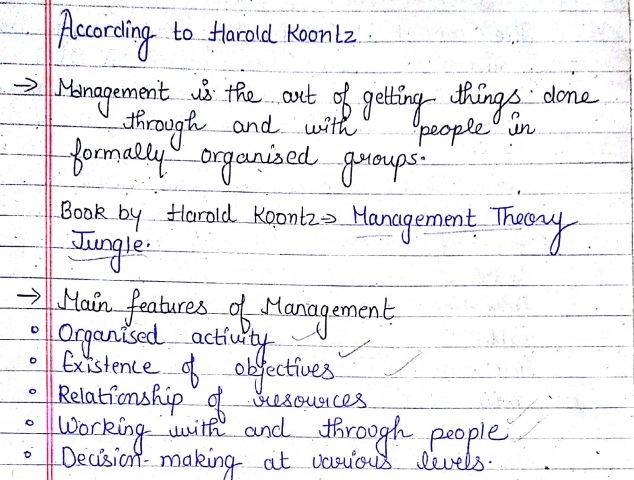 According to Harold Koontz.
→ Management is the art of getting things done
through and with people in
formally organised groups.
Book by Harold Koontz → Management Theory
Jungle.
→ Main features of Management
• Organised activity
• Existence of objectives
• Relationship of resources
• Working with and through people
• Decision-making at various levels.